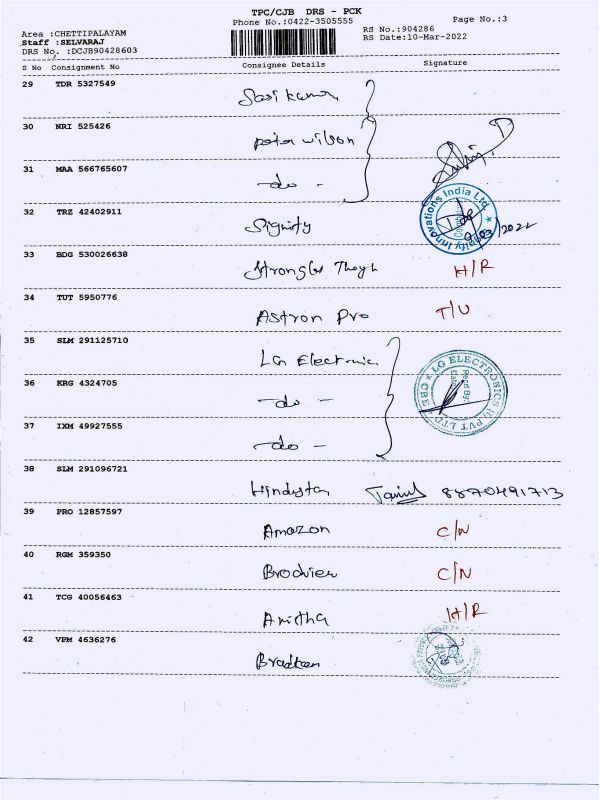 TPC/CJB DRS - PCK
Phone No.:0422-3505555
Page No.:3
Area :CHETTIPALAYAM
Staff :SELVARAJ
DRS No. :DCJB90428603
RS No.:904286
RS Date:10-Mar-2022
S No Consignment No Consignee Details Signature
29 TDR 5327549
Sasikumar
30 NRI 525426
Peter Wilson
31 MAA 566765607
- do -
32 TRZ 42402911
Signify
Signify Innovations India Ltd
/03/2022
33 BDG 530026638
H/R
34 TUT 5950776
Astron Pro T/U
35 SLM 291125710
LG Electronic
36 KRG 4324705
- do -
LG ELECTRONICS (I) PVT LTD CBE
Recd By:
37 IXM 49927555
- do -
38 SLM 291096721
Hindustan 8870491713
39 PRO 12857597
Amazon C/N
40 RGM 359350
C/N
41 TCG 40056463
Anitha H/R
42 VPM 4636276
Bradken